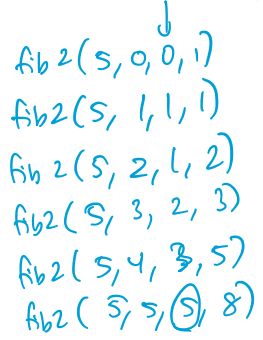 fib2(5, 0, 0, 1)
fib2(5, 1, 1, 1)
fib2(5, 2, 1, 2)
fib2(5, 3, 2, 3)
fib2(5, 4, 3, 5)
fib2(5, 5, 5, 8)